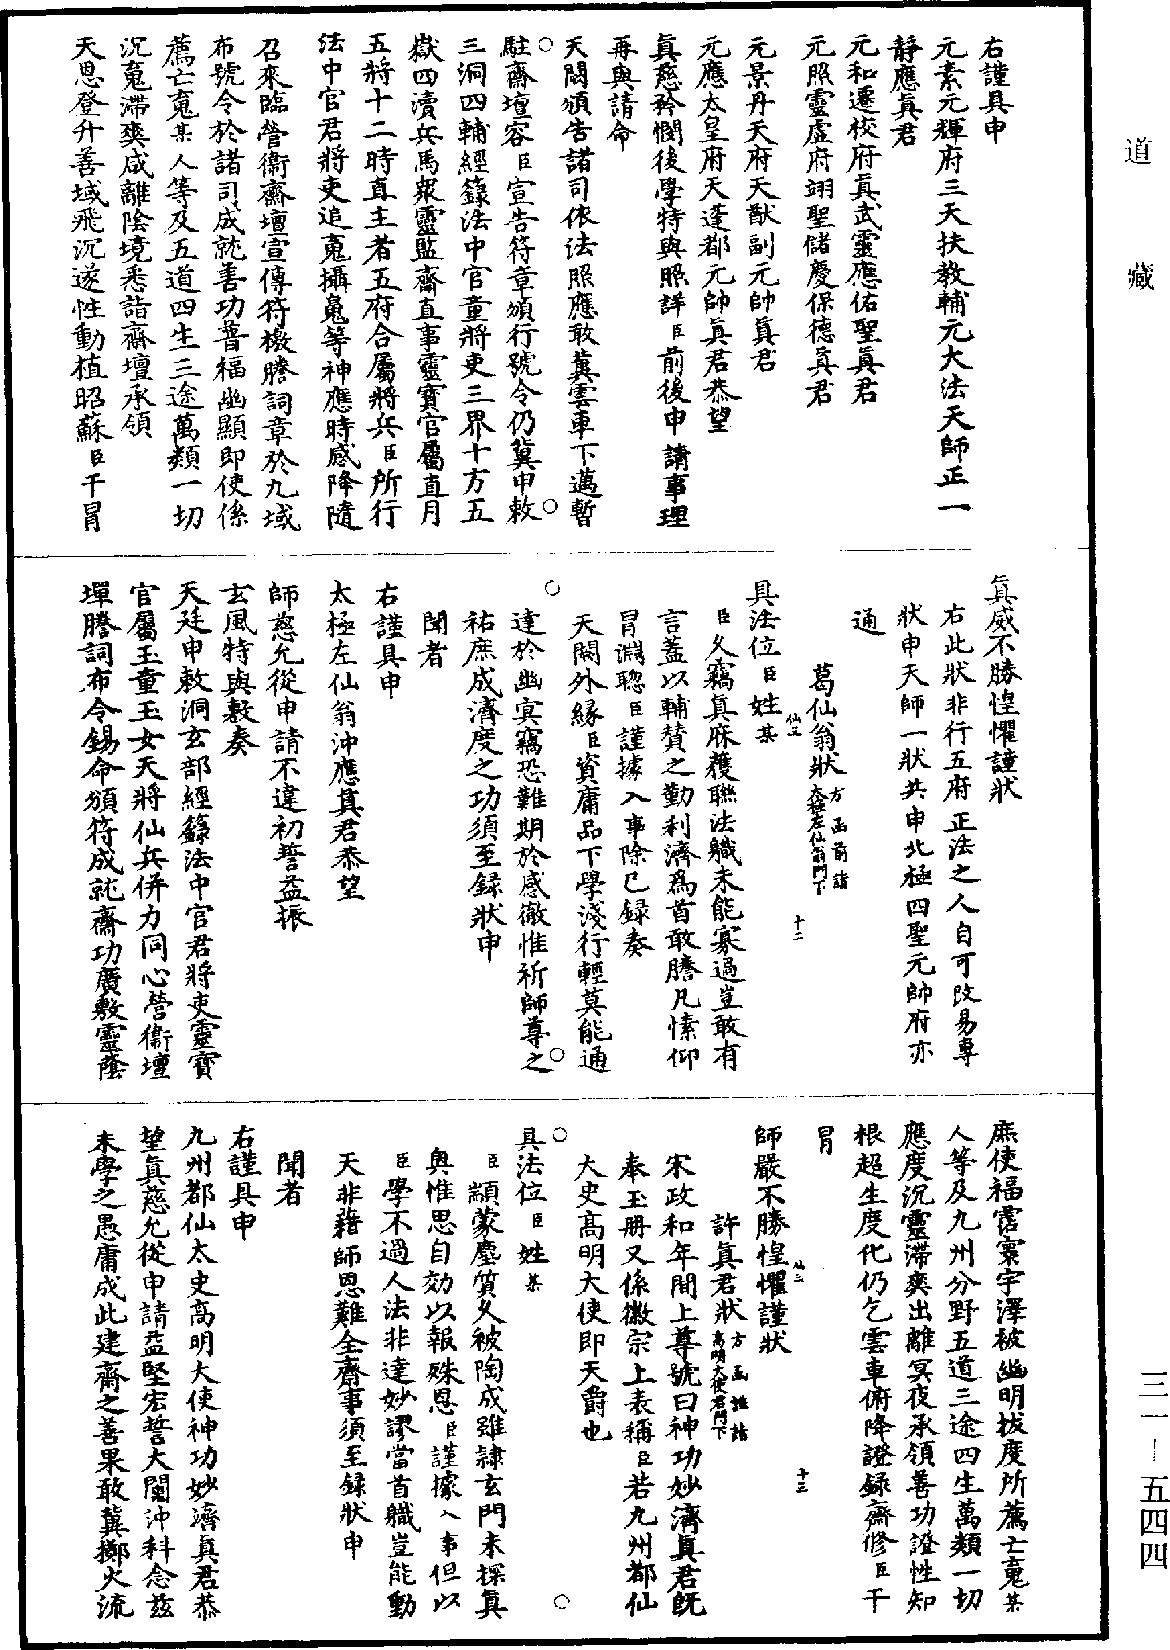 道藏
右謹具申
元素元輝府三天扶教輔元大法天師正一
靜應真君
元和遷校府真武靈應佑聖真君
元照靈虛府翊聖儲慶保德真君
元景丹天府天猷副元帥真君
元應太皇府天蓬都元帥真君恭望
真慈矜憫後學特與照詳臣前後申請事理
再與請命
天閽頒告諸司依法照應敢冀雲車下邁暫
駐齋壇容臣宣告符章頒行號令仍冀申敕
三洞四輔經籙法中官童將吏三界十方五
嶽四瀆兵馬眾靈監齋直事靈寶官屬直月
五將十二時直主者五府合屬將兵臣所行
法中官君將吏追䰟攝䰟等神應時感降隨
召來臨營衞齋壇宣傳符檄謄詞章於九域
布號令於諸司成就善功普福幽顯即使係
薦亡䰟某人等及五道四生三途萬類一切
沉䰟滯爽咸離陰境悉詣齋壇承領
天恩登升善域飛沉遂性動植昭蘇臣干冒
真威不勝惶懼謹狀
右此狀非行五府正法之人自可改易專
狀申天師一狀共申北極四聖元帥府亦
通
葛仙翁狀方函前諸太極左仙翁門下
十二
具法位臣姓某
臣久竊真庥獲聯法職未能寡過豈敢有
言蓋以輔贊之勤利濟爲首敢謄凡愫仰
冒淵聰臣謹據入事除已錄奏
天闕外緣臣資庸品下學淺行輕莫能通
達於幽冥竊恐難期於感徹惟祈師尊之
祐庶成濟度之功須至錄狀申
聞者
右謹具申
太極左仙翁沖應真君恭望
師慈允從申請不違初誓益振
玄風特與敷奏
天廷申敕洞玄部經籙法中官君將吏靈寶
官屬玉童玉女天將仙兵併力同心營衞壇
墠謄詞布令錫命頒符成就齋功廣敷靈蔭
庶使福霑寰宇澤被幽明拔度所薦亡䰟某
人等及九州分野五道三途四生萬類一切
應度沉靈滯爽出離冥夜承領善功證性知
根超生度化仍乞雲車俯降證錄齋修臣干
冒
師嚴不勝惶懼謹狀
許真君狀方函詣高明大使君門下
十三
宋政和年間上尊號曰神功妙濟真君旣
奉玉册又係徽宗上表稱臣若九州都仙
大史高明大使即天爵也
具法位臣姓某
臣顓蒙塵質久被陶成雖隷玄門未探真
奧惟思自効以報殊恩臣謹據入事但以
臣學不過人法非達妙謬當首職豈能動
天非藉師恩難全齋事須至錄狀申
聞者
右謹具申
九州都仙太史高明大使神功妙濟真君恭
望真慈允從申請益堅宏誓大闡沖科念茲
末學之愚庸成此建齋之善果敢冀擲火流
三一—五四四